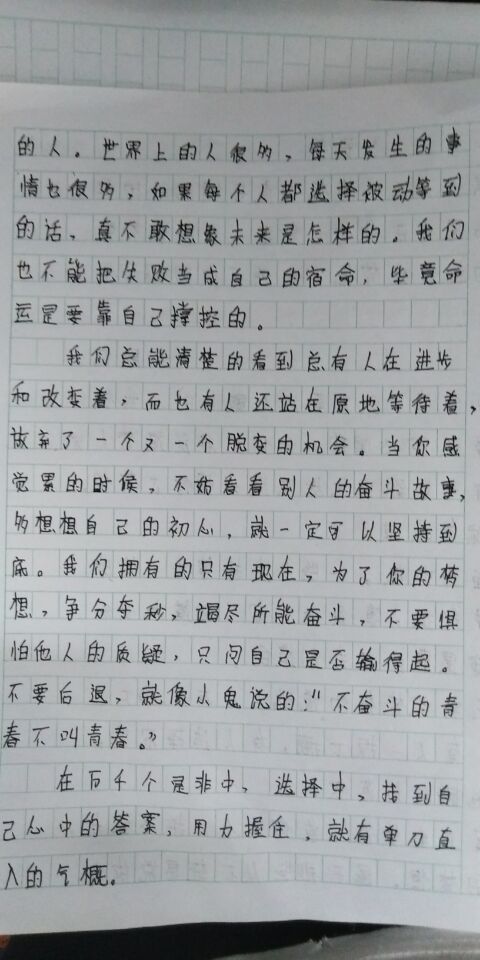 的人。世界上的人很多，每天发生的事
情也很多，如果每个人都选择被动等到
的话，真不敢想象未来是怎样的。我们
也不能把失败当成自己的宿命，毕竟命
运是要靠自己撑控的。
我们总能清楚的看到总有人在进步
和改变着，而也有人还站在原地等待着，
放弃了一个又一个脱变的机会。当你感
觉累的时候，不妨看看别人的奋斗故事，
多想想自己的初心，就一定可以坚持到
底。我们拥有的只有现在，为了你的梦
想，争分夺秒，竭尽所能奋斗，不要惧
怕他人的质疑，只问自己是否输得起。
不要后退，就像小鬼说的：“不奋斗的青
春不叫青春。”
在万千个是非中，选择中，找到自
己心中的答案，用力握住，就有单刀直
入的气概。